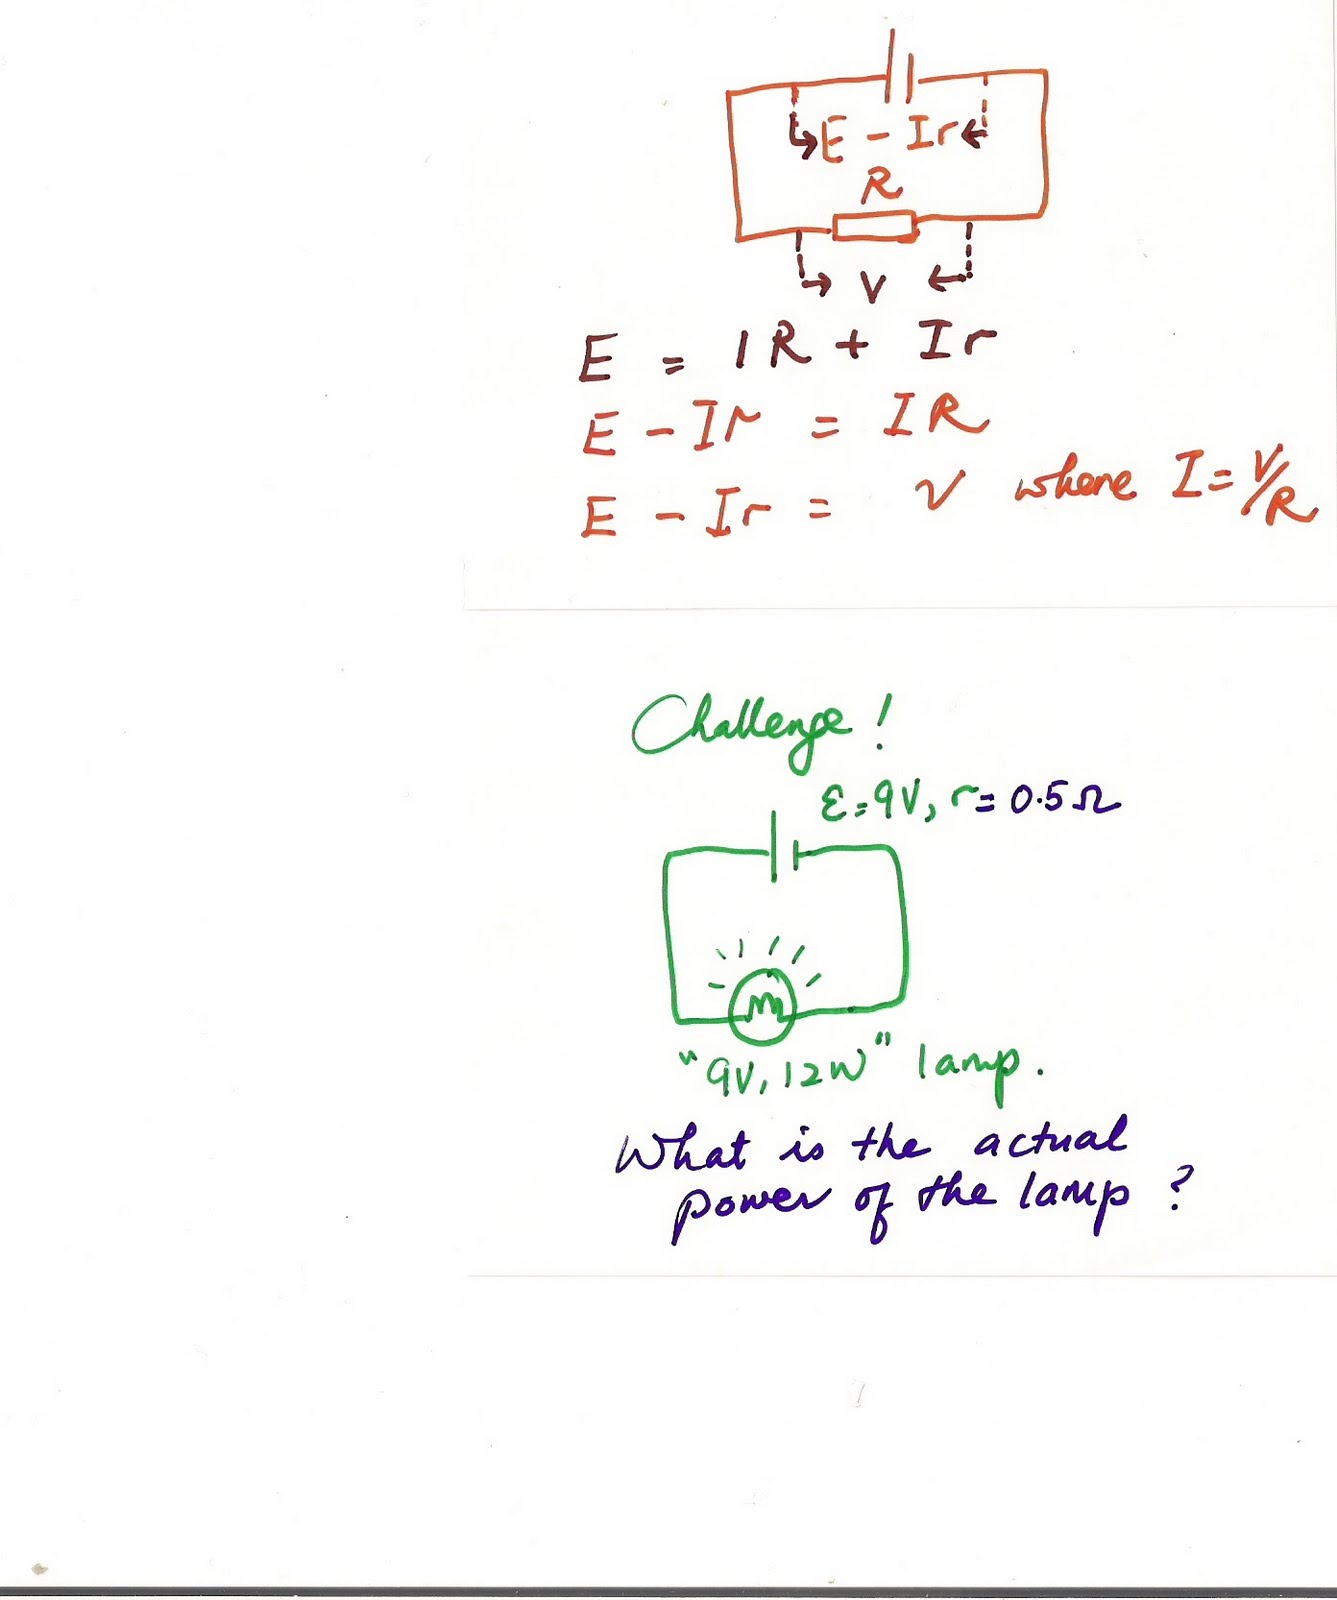 E - Ir
R
V
E = IR + Ir
E - Ir = IR
E - Ir = V where I = V/R
Challenge!
ε=9V, r= 0.5Ω
"9V, 12W" lamp.
What is the actual
power of the lamp?